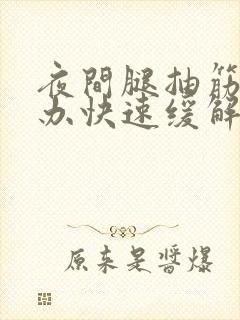 夜間腿抽筋
办快速缓解
原来是醬爆